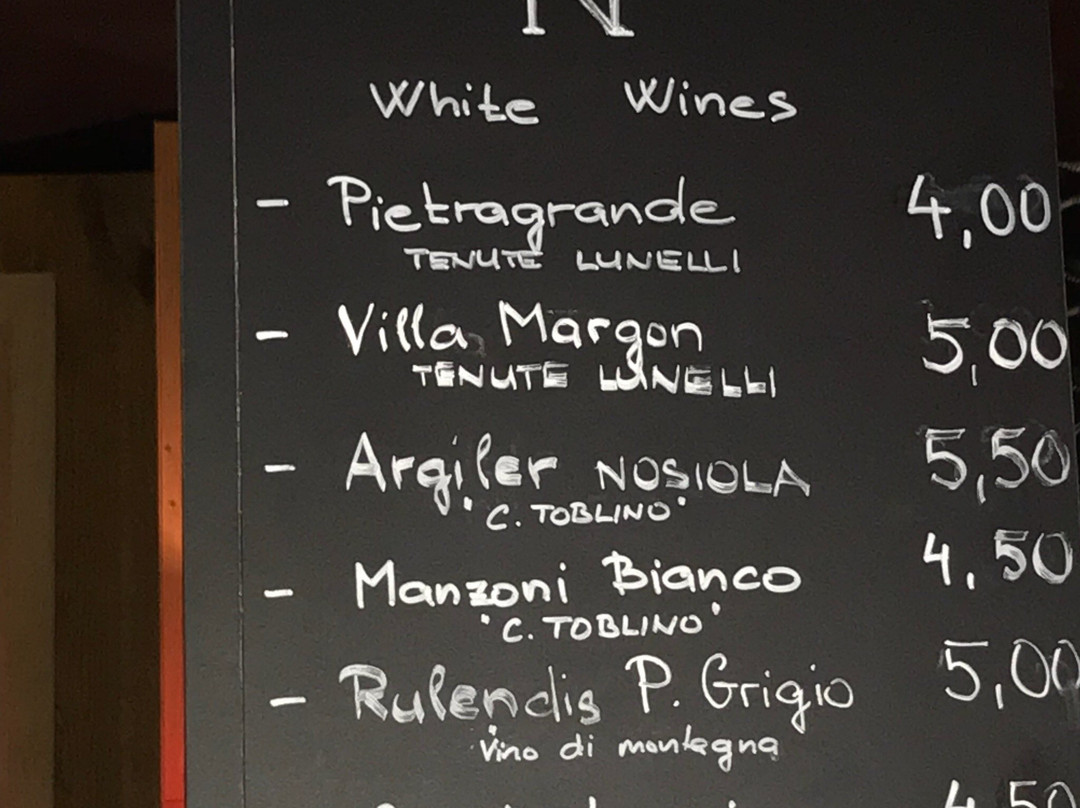 N
White Wines
- Pietragrande 4,00
TENUTE LUNELLI
- Villa Margon 5,00
TENUTE LUNELLI
- Argiler NOSIOLA 5,50
"C. TOBLINO"
- Manzoni Bianco 4,50
"C. TOBLINO"
- Rulendis P. Grigio 5,00
Vino di montagna
4,50